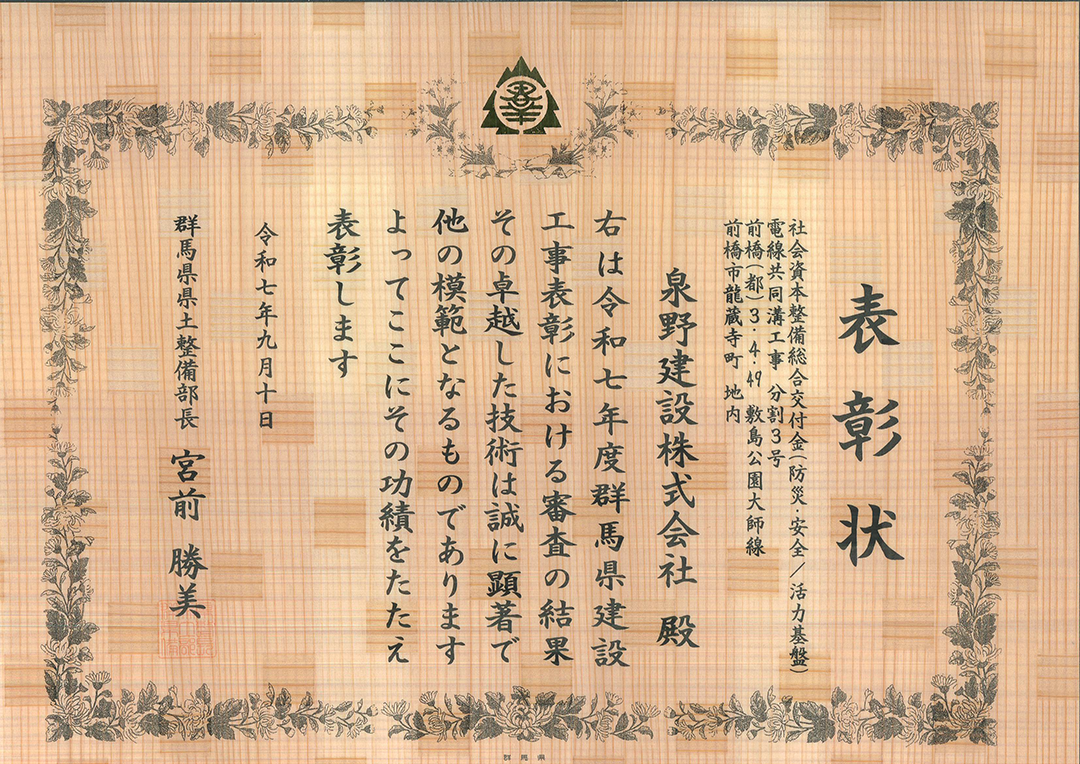 表彰状
社会資本整備総合交付金(防災・安全/活力基盤)
電線共同溝工事 分割3号
前橋(都)3・4・49 敷島公園大師線
前橋市龍蔵寺町 地内
泉野建設株式会社 殿
右は令和七年度群馬県建設
工事表彰における審査の結果
その卓越した技術は誠に顕著で
他の模範となるものであります
よってここにその功績をたたえ
表彰します
令和七年九月十日
群馬県県土整備部長 宮前 勝美
群馬県